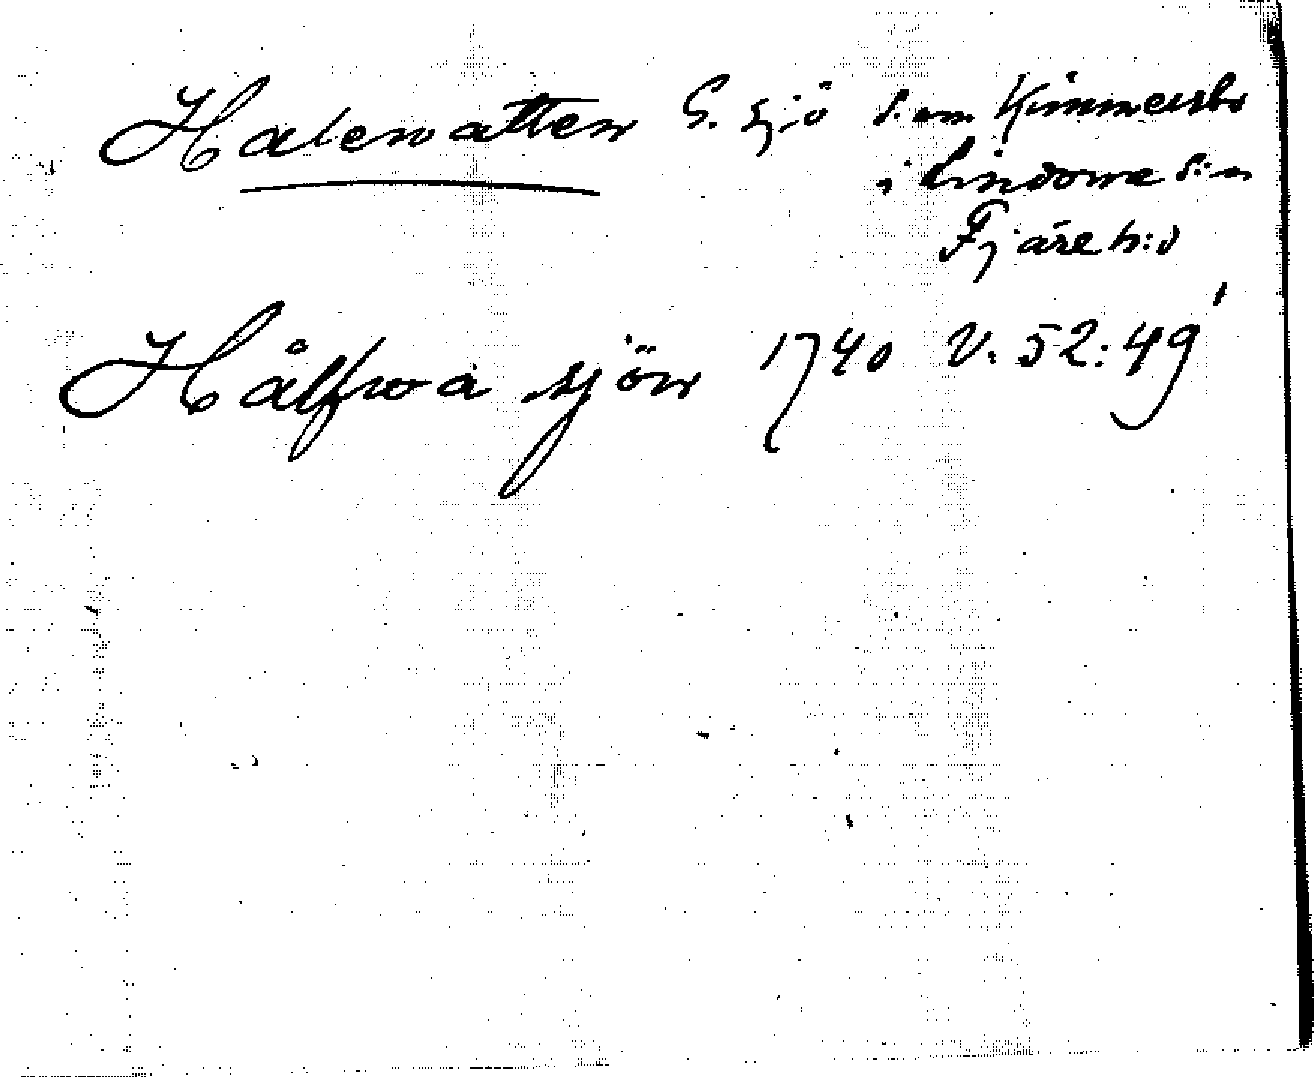 Halewatten G. sjö S. om Kimmersbo
i Lindome s:n
Fjäre h:d
Hålfwa sjön 1740 V. 52:49'